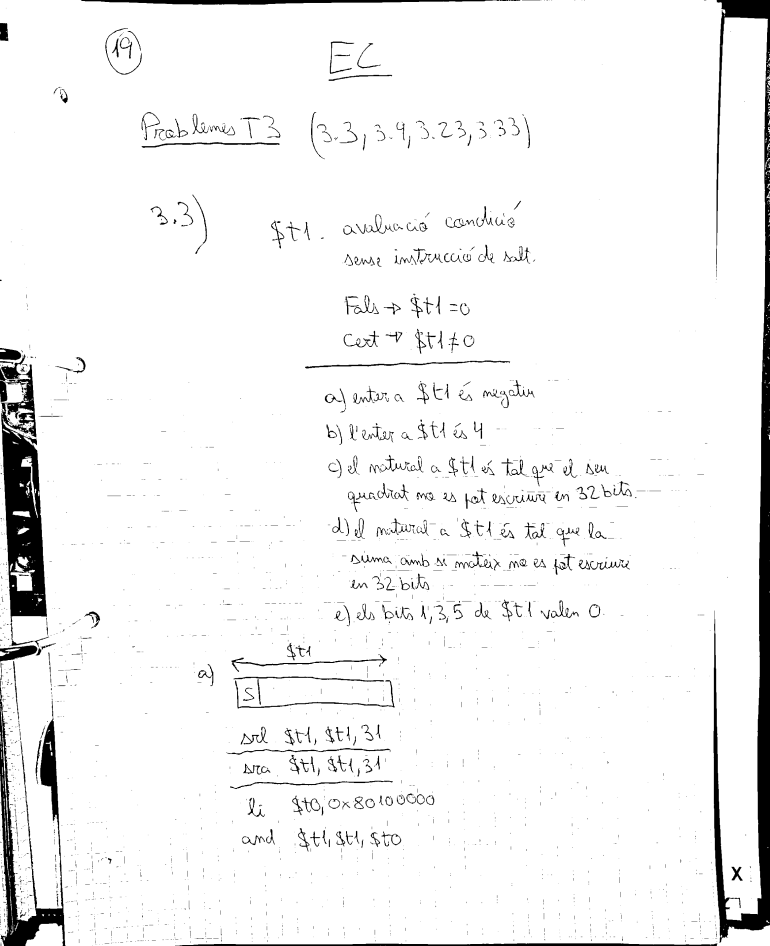 19
EC
Problemes T3 (3.3, 3.9, 3.23, 3.33)
3.3) $t1. avaluació condició
sense instrucció de salt.
Fals → $t1 = 0
Cert → $t1 ≠ 0
a) enter a $t1 és negatiu
b) l'enter a $t1 és 4
c) el natural a $t1 és tal que el seu
quadrat no es pot escriure en 32 bits.
d) el natural a $t1 és tal que la
suma amb si mateix no es pot escriure
en 32 bits
e) els bits 1,3,5 de $t1 valen 0
a) $t1
S
srl $t1, $t1, 31
sra $t1, $t1, 31
li $t0, 0x80100000
and $t1, $t1, $t0
X